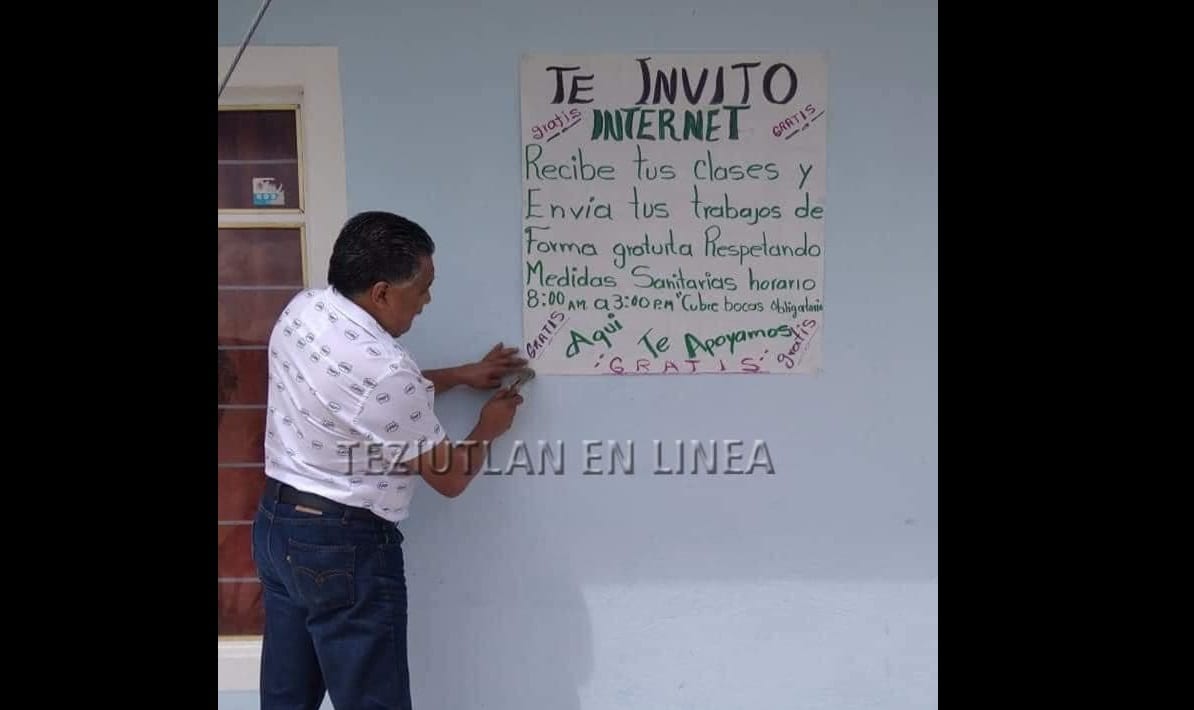 TE INVITO
gratis INTERNET GRATIS
Recibe tus clases y
Envía tus trabajos de
Forma gratuita Respetando
Medidas Sanitarias horario
8:00 AM a 3:00 P.M "Cubre bocas obligatorio
GRATIS Aquí Te Apoyamos gratis
GRATIS
TEZIUTLAN EN LINEA